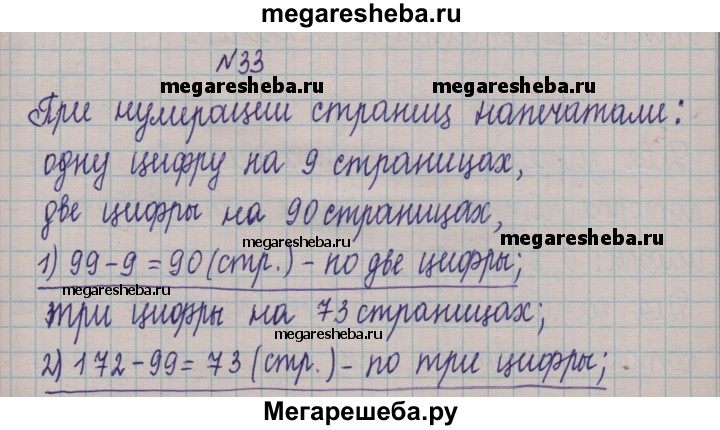 megaresheba.ru
N33
megaresheba.ru
При нумерации страниц напечатали:
одну цифру на 9 страницах,
две цифры на 90 страницах,
megaresheba.ru
megaresheba.ru
1) 99-9=90 (стр.) - по две цифры;
megaresheba.ru
три цифры на 73 страницах;
megaresheba.ru
2) 172-99=73 (стр.) - по три цифры;
megaresheba.ru
Мегарешеба.ру